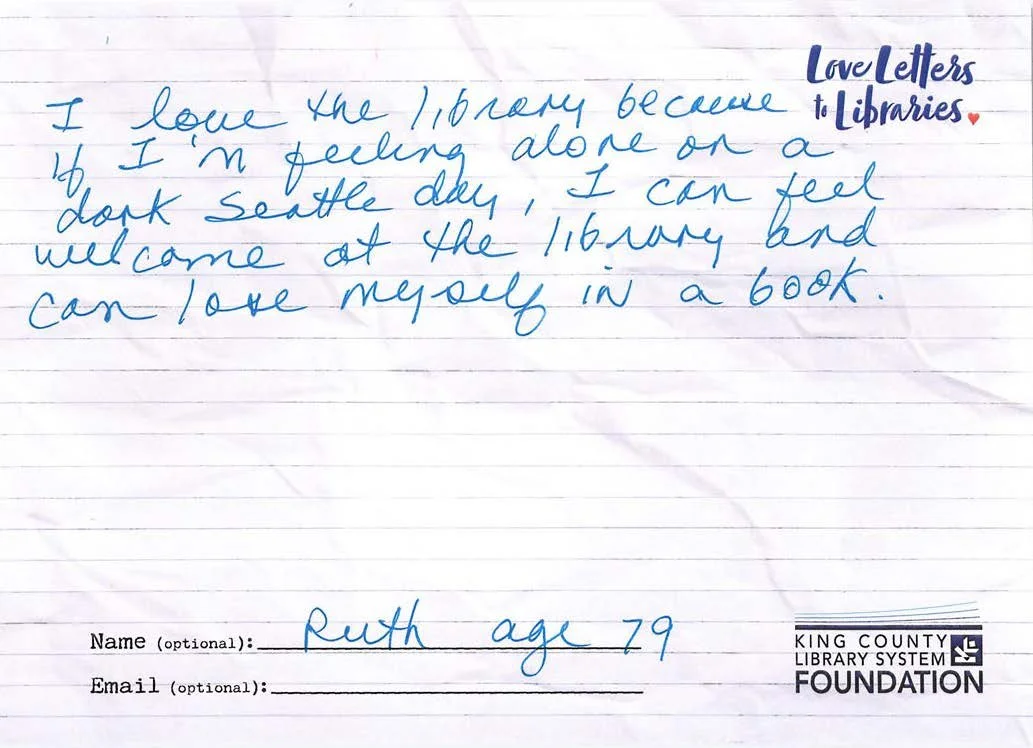 Love Letters
to Libraries
I love the library because
if I'm feeling alone on a
dark Seattle day, I can feel
welcome at the library and
can lose myself in a book.
Name (optional): Ruth age 79
Email (optional):
KING COUNTY
LIBRARY SYSTEM
FOUNDATION